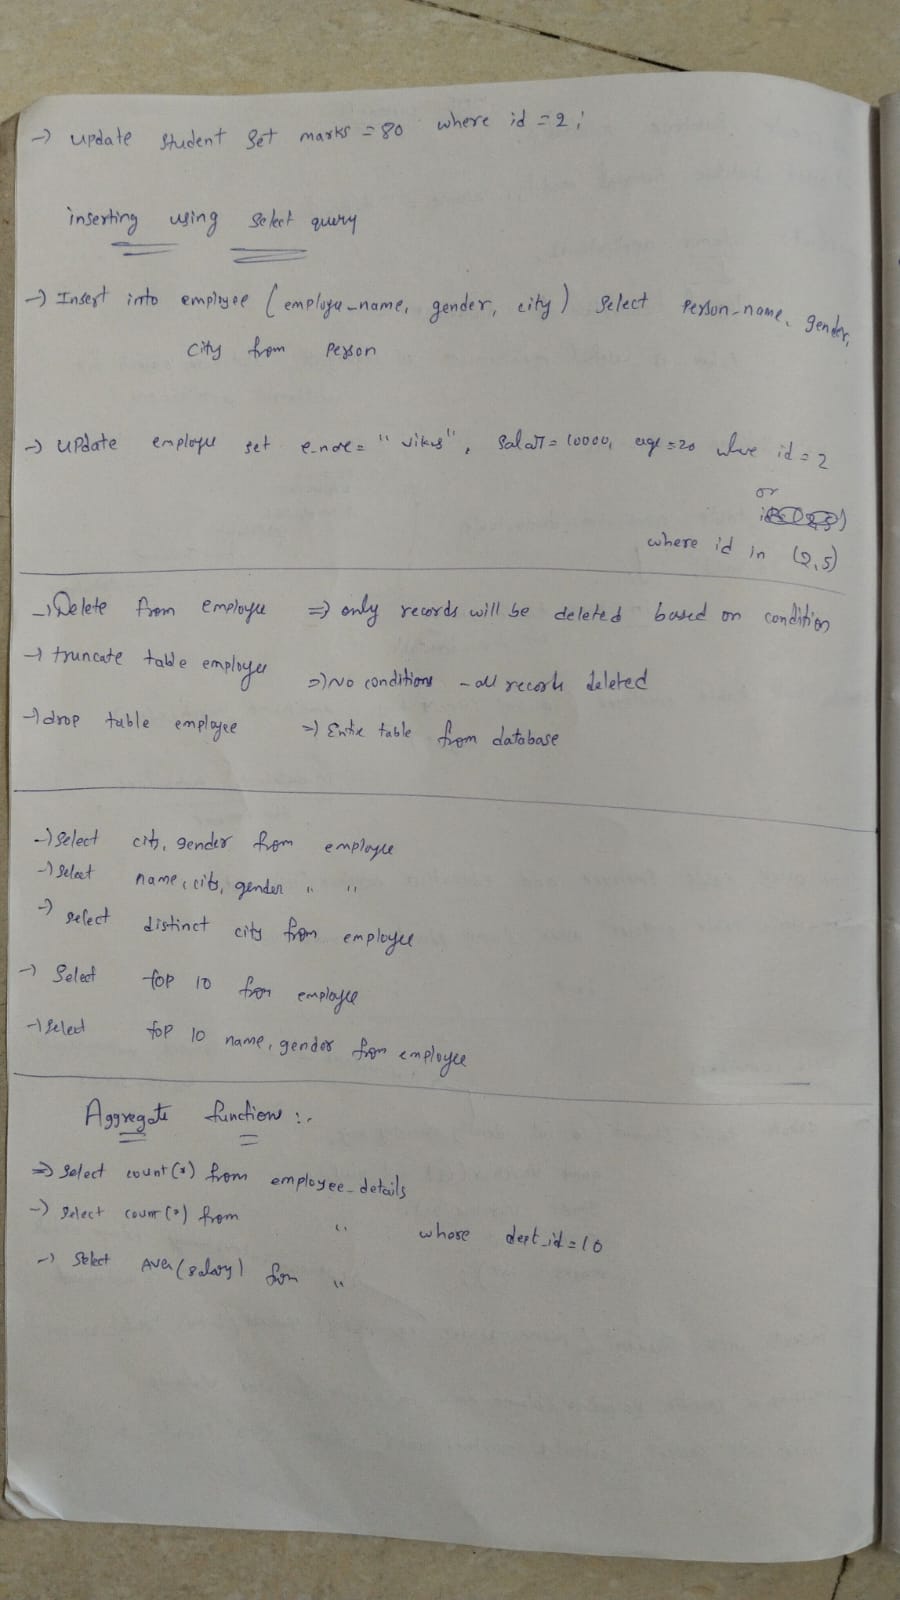 → update student set marks = 80 where id = 2;
inserting using select query
→ Insert into employee (employee_name, gender, city) Select Person_name, gender,
city from Person
→ update employee set e_nae = "vikas", salary = 10000, age = 20 where id = 2
or
where id in (2,5)
→ Delete from employee ⇒ only records will be deleted based on condition
→ truncate table employee ⇒ No conditions - all records deleted
→ drop table employee ⇒ Entire table from database
→ select city, gender from employee
→ select name, city, gender " "
→ select distinct city from employee
→ Select top 10 from employee
→ select top 10 name, gender from employee
Aggregate function :-
⇒ select count(*) from employee_details
→ select count(*) from " where dept_id = 10
→ select AVG(salary) from "